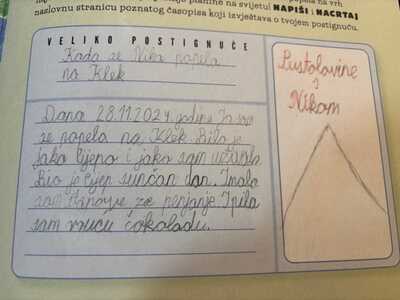 popela na vrh
planine na svijetu! NAPIŠI i NACRTAJ
naslovnu stranicu poznatog časopisa koji izvještava o tvojem postignuću.
VELIKO POSTIGNUĆE
Kada se Nika popela
na Klek
Dana 28.11.2024. godine Ja sam
se popela na Klek. Bilo je
jako lijepo i jako sam uživala
Bio je lijep sunčan dan. Imala
sam za penjanje. I pila
sam vruću čokoladu.
Pustolovine
s
Nikom